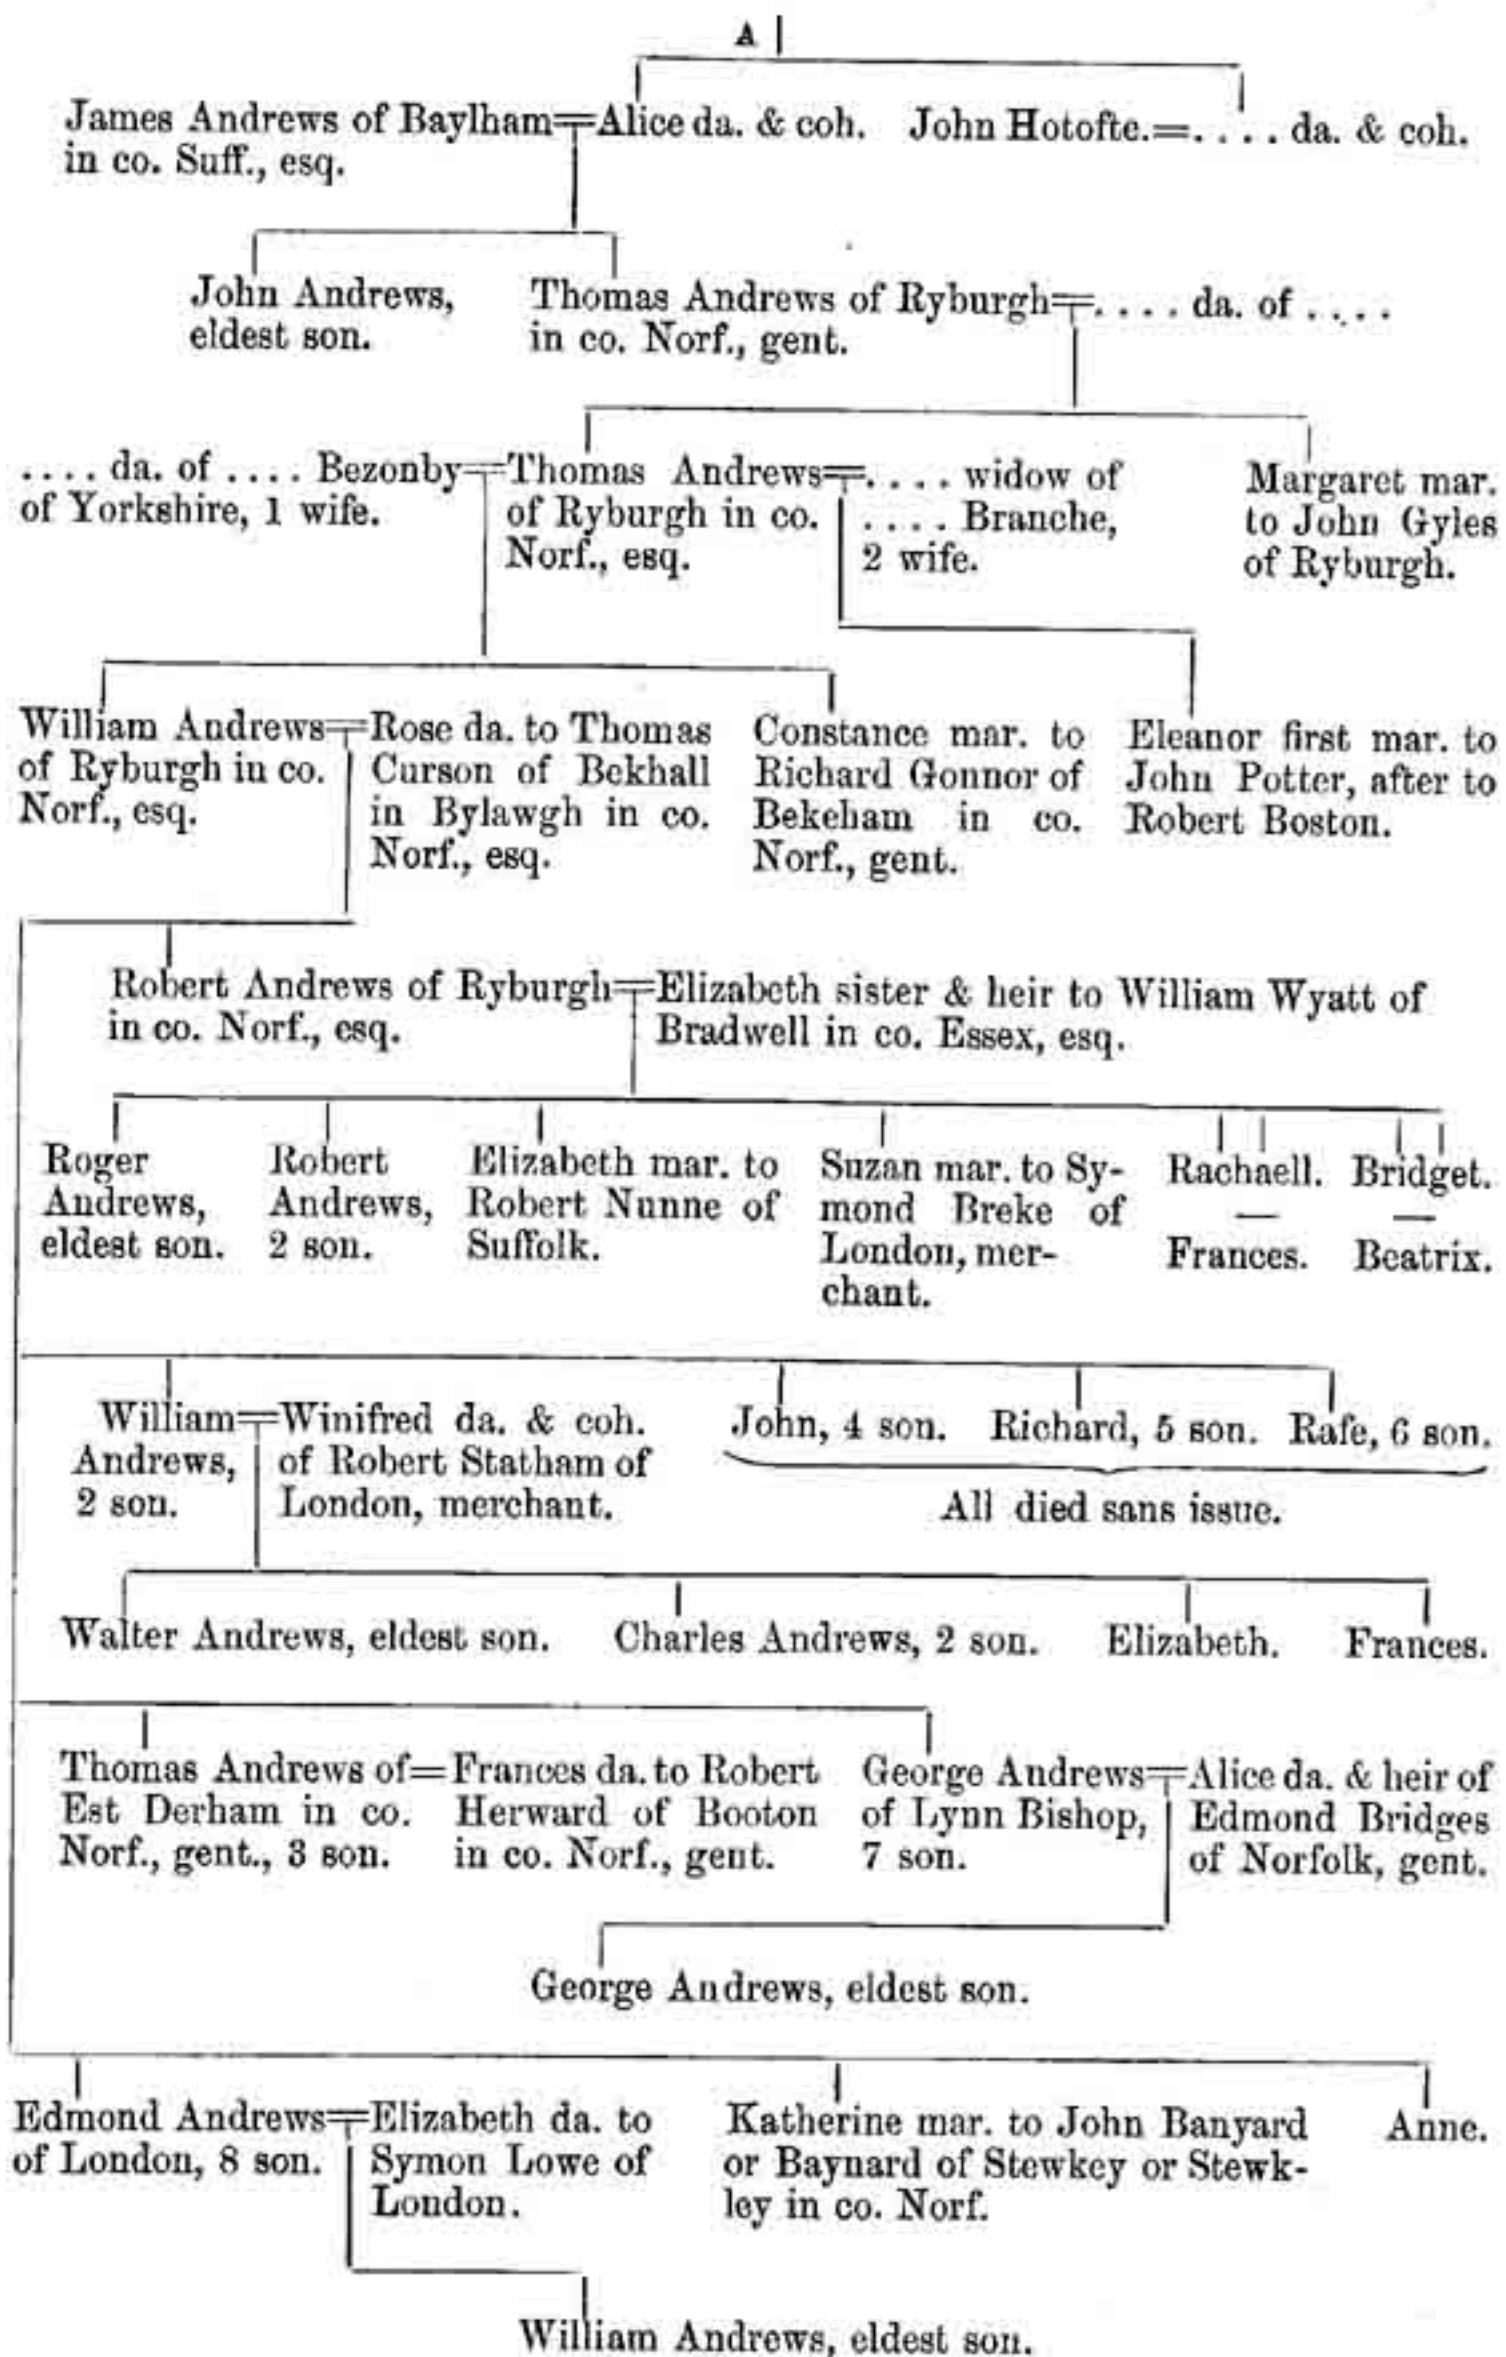 A
James Andrews of Baylham=Alice da. & coh. John Hotofte.=.... da. & coh.
in co. Suff., esq.
John Andrews,
eldest son.
Thomas Andrews of Ryburgh=.... da. of ....
in co. Norf., gent.
.... da. of .... Bezonby
of Yorkshire, 1 wife.
=Thomas Andrews=
of Ryburgh in co.
Norf., esq.
.... widow of
.... Branche,
2 wife.
Margaret mar.
to John Gyles
of Ryburgh.
William Andrews=
of Ryburgh in co.
Norf., esq.
Rose da. to Thomas
Curson of Bekhall
in Bylawgh in co.
Norf., esq.
Constance mar. to
Richard Gonnor of
Bekeham in co.
Norf., gent.
Eleanor first mar. to
John Potter, after to
Robert Boston.
Robert Andrews of Ryburgh=
in co. Norf., esq.
Elizabeth sister & heir to William Wyatt of
Bradwell in co. Essex, esq.
Roger
Andrews,
eldest son.
Robert
Andrews,
2 son.
Elizabeth mar. to
Robert Nunne of
Suffolk.
Suzan mar. to Sy-
mond Breke of
London, mer-
chant.
Rachaell.
—
Frances.
Bridget.
—
Beatrix.
William=
Andrews,
2 son.
Winifred da. & coh.
of Robert Statham of
London, merchant.
John, 4 son. Richard, 5 son. Rafe, 6 son.
All died sans issue.
Walter Andrews, eldest son. Charles Andrews, 2 son. Elizabeth. Frances.
Thomas Andrews of=
Est Derham in co.
Norf., gent., 3 son.
Frances da. to Robert
Herward of Booton
in co. Norf., gent.
George Andrews=
of Lynn Bishop,
7 son.
Alice da. & heir of
Edmond Bridges
of Norfolk, gent.
George Andrews, eldest son.
Edmond Andrews=
of London, 8 son.
Elizabeth da. to
Symon Lowe of
London.
Katherine mar. to John Banyard
or Baynard of Stewkey or Stewk-
ley in co. Norf.
Anne.
William Andrews, eldest son.